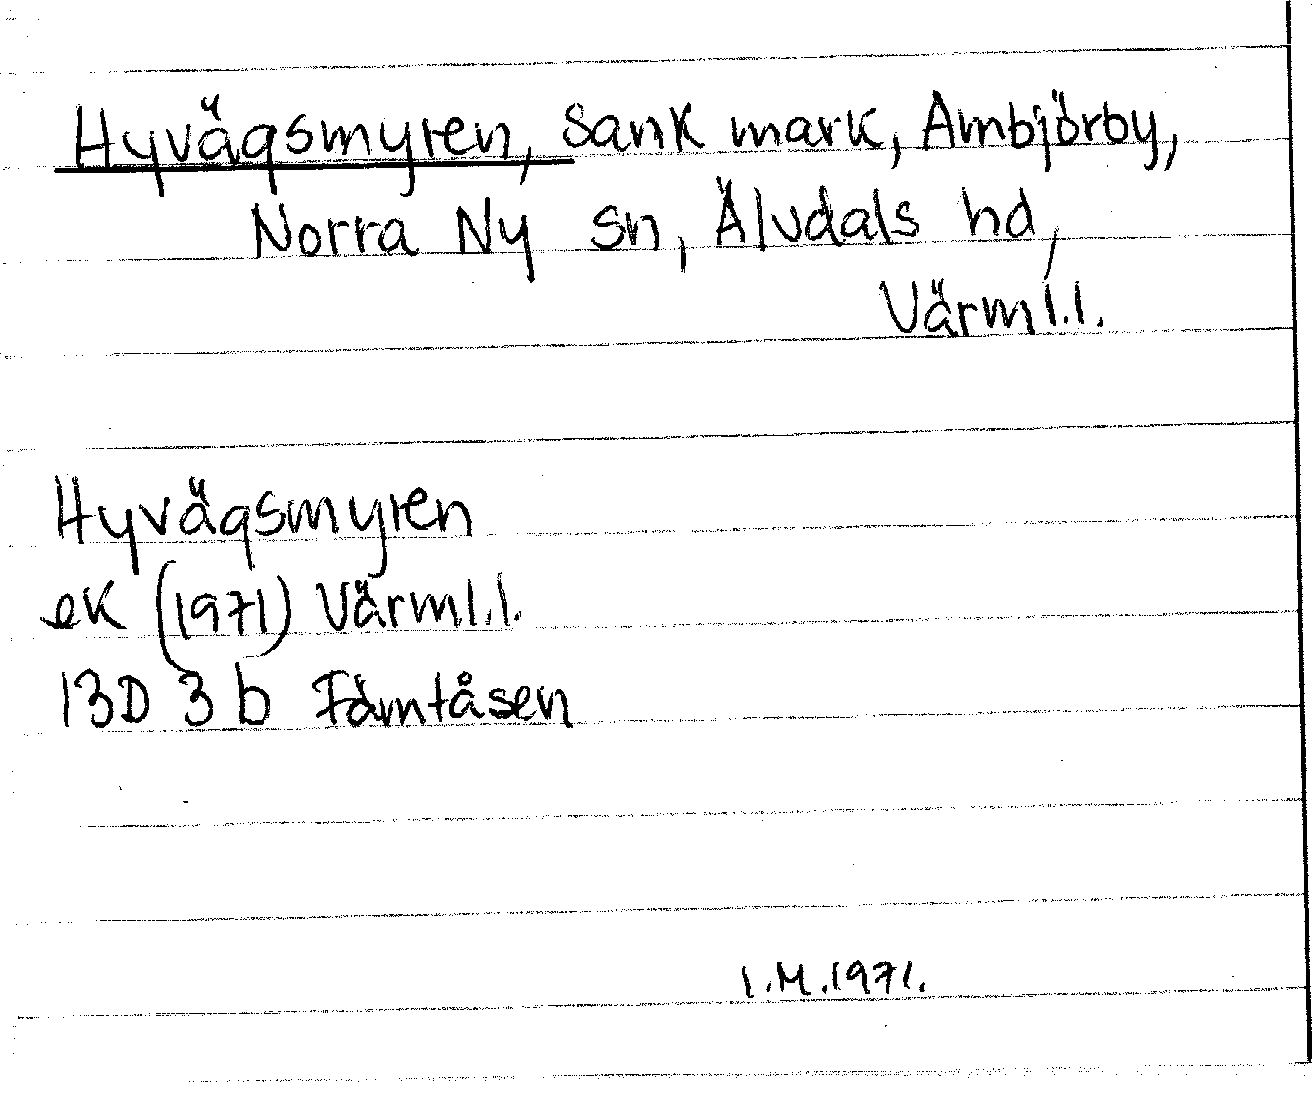 Hyvägsmyren, Sank mark, Ambjörby,
Norra Ny sn, Älvdals hd,
Värml.l.
Hyvägsmyren
ek (1971) Värml.l.
13D 3b Fämtåsen
I.M.1971.